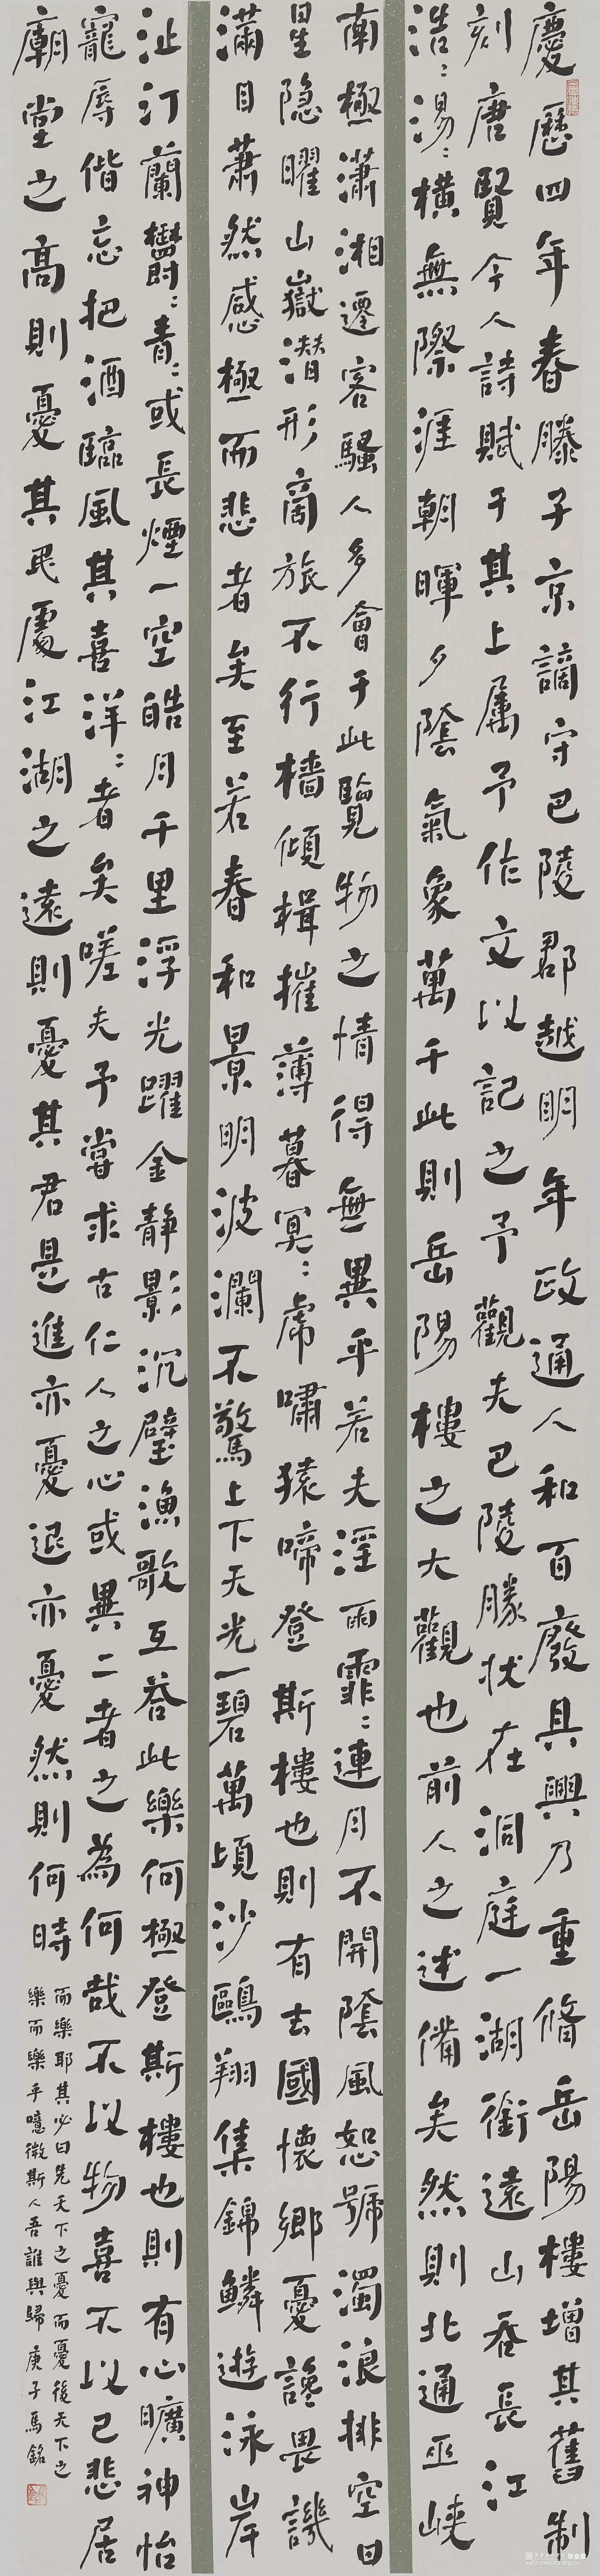 慶曆四年春滕子京謫守巴陵郡越明年政通人和百廢具興乃重脩岳陽樓增其舊制
刻唐賢今人詩賦于其上屬予作文以記之予觀夫巴陵勝狀在洞庭一湖銜遠山吞長江
浩:湯:橫無際涯朝暉夕陰氣象萬千此則岳陽樓之大觀也前人之述備矣然則北通巫峽
南極瀟湘遷客騷人多會于此覽物之情得無異乎若夫淫雨霏:連月不開陰風怒號濁浪排空日
星隱曜山嶽潛形商旅不行檣傾楫摧薄暮冥:虎嘯猿啼登斯樓也則有去國懷鄉憂讒畏譏
滿目蕭然感極而悲者矣至若春和景明波瀾不驚上下天光一碧萬頃沙鷗翔集錦鱗遊泳岸
沚汀蘭鬱:青:或長煙一空皓月千里浮光躍金靜影沉璧漁歌互答此樂何極登斯樓也則有心曠神怡
寵辱偕忘把酒臨風其喜洋:者矣嗟夫予嘗求古仁人之心或異二者之為何哉不以物喜不以己悲居
廟堂之高則憂其民處江湖之遠則憂其君是進亦憂退亦憂然則何時
而樂耶其必曰先天下之憂而憂後天下之
樂而樂乎噫微斯人吾誰與歸 庚子馬銘